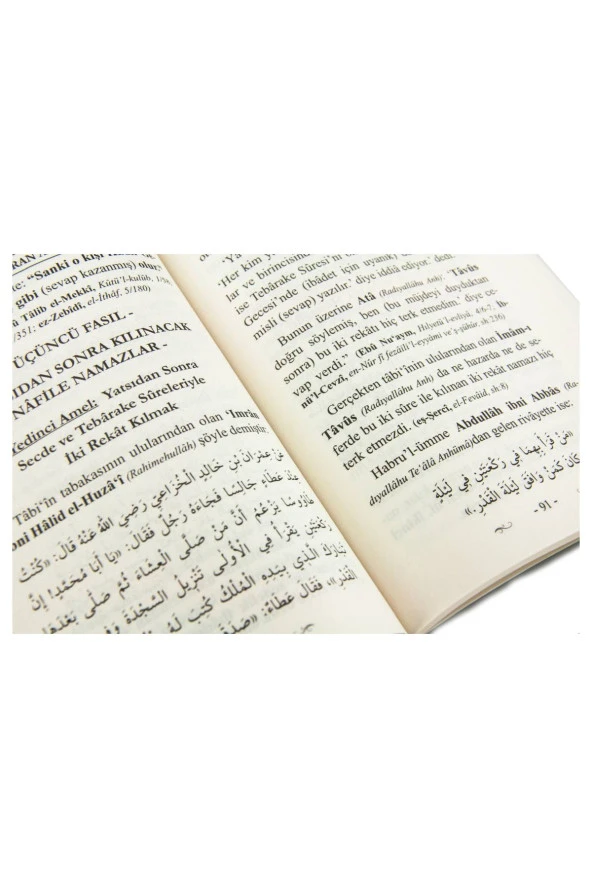 te: “Sanki o kişi
gibi (sevap kazanmış) olur.”
Tâlib el-Mekkî, Kûtü'l-kulûb, 1/
/351; ez-Zebîdî, el-İthâf, 5/180)
ÜÇÜNCÜ FASIL -
SIDAN SONRA KILINACAK
NÂFİLE NAMAZLAR -
Yedinci Amel: Yatsıdan Sonra
Secde ve Tebârake Sûreleriyle
İki Rekât Kılmak
Tâbi‘în tabakasının ulularından olan ‘Imrân
ibni Hâlid el-Huzâ‘î (Rahimehullâh) şöyle demiştir:
عَنْ عِمْرَانَ بْنِ خَالِدٍ الْخُزَاعِيِّ رَضِيَ اللهُ عَنْهُ قَالَ: «كُنْتُ
عِنْدَ عَطَاءٍ جَالِسًا فَجَاءَهُ رَجُلٌ فَقَالَ: «يَا أَبَا مُحَمَّدٍ! إِنَّ
طَاوُوسًا يَزْعُمُ أَنَّ مَنْ صَلَّى الْعِشَاءَ ثُمَّ صَلَّى بَعْدَهَا
رَكْعَتَيْنِ يَقْرَأُ فِي الْأُولَى تَنْزِيلَ السَّجْدَةِ وَفِي
تَبَارَكَ الَّذِي بِيَدِهِ الْمُلْكُ كُتِبَ لَهُ
الْقَدْرِ.» فَقَالَ عَطَاءٌ:
‘Her kim
lar ve birincisinde
ise Tebârake Sûresi'ni
Gecesi'nde (ibâdet için uyanık)
misli (sevap) yazılır.’ diye iddiâ ediyor.’ dedi
Bunun üzerine Atâ (Radıyallâhu Anh) ‘Tâvûs
doğru söylemiş, ben (bu müjdeyi duyduktan
sonra) bu iki rekâtı hiç terk etmedim.’ diye ce-
vap verdi.” (Ebû Nu‘aym, Hilyetü'l-evliyâ, 4/6-7; İb-
nü'l-Cevzî, en-Nûr fî fezâili'l-eyyâmi ve'ş-şühûr, sh:236)
Gerçekten tâbi‘înin ulularından olan İmâm-ı
Tâvûs (Radıyallâhu Anh) da ne hazarda ne de se-
ferde bu iki sûre ile kılınan iki rekât namazı hiç
terk etmezdi. (eş-Şercî, el-Fevâid, sh:8)
Habru'l-ümme Abdullâh ibni Abbâs (Ra-
dıyallâhu Te‘âlâ Anhümâ)dan gelen rivâyette ise:
«مَنْ قَرَأَ بِهِمَا فِي رَكْعَتَيْنِ فِي لَيْلَةٍ
كَانَ كَمَنْ وَافَقَ لَيْلَةَ الْقَدْرِ.»
- 91 -